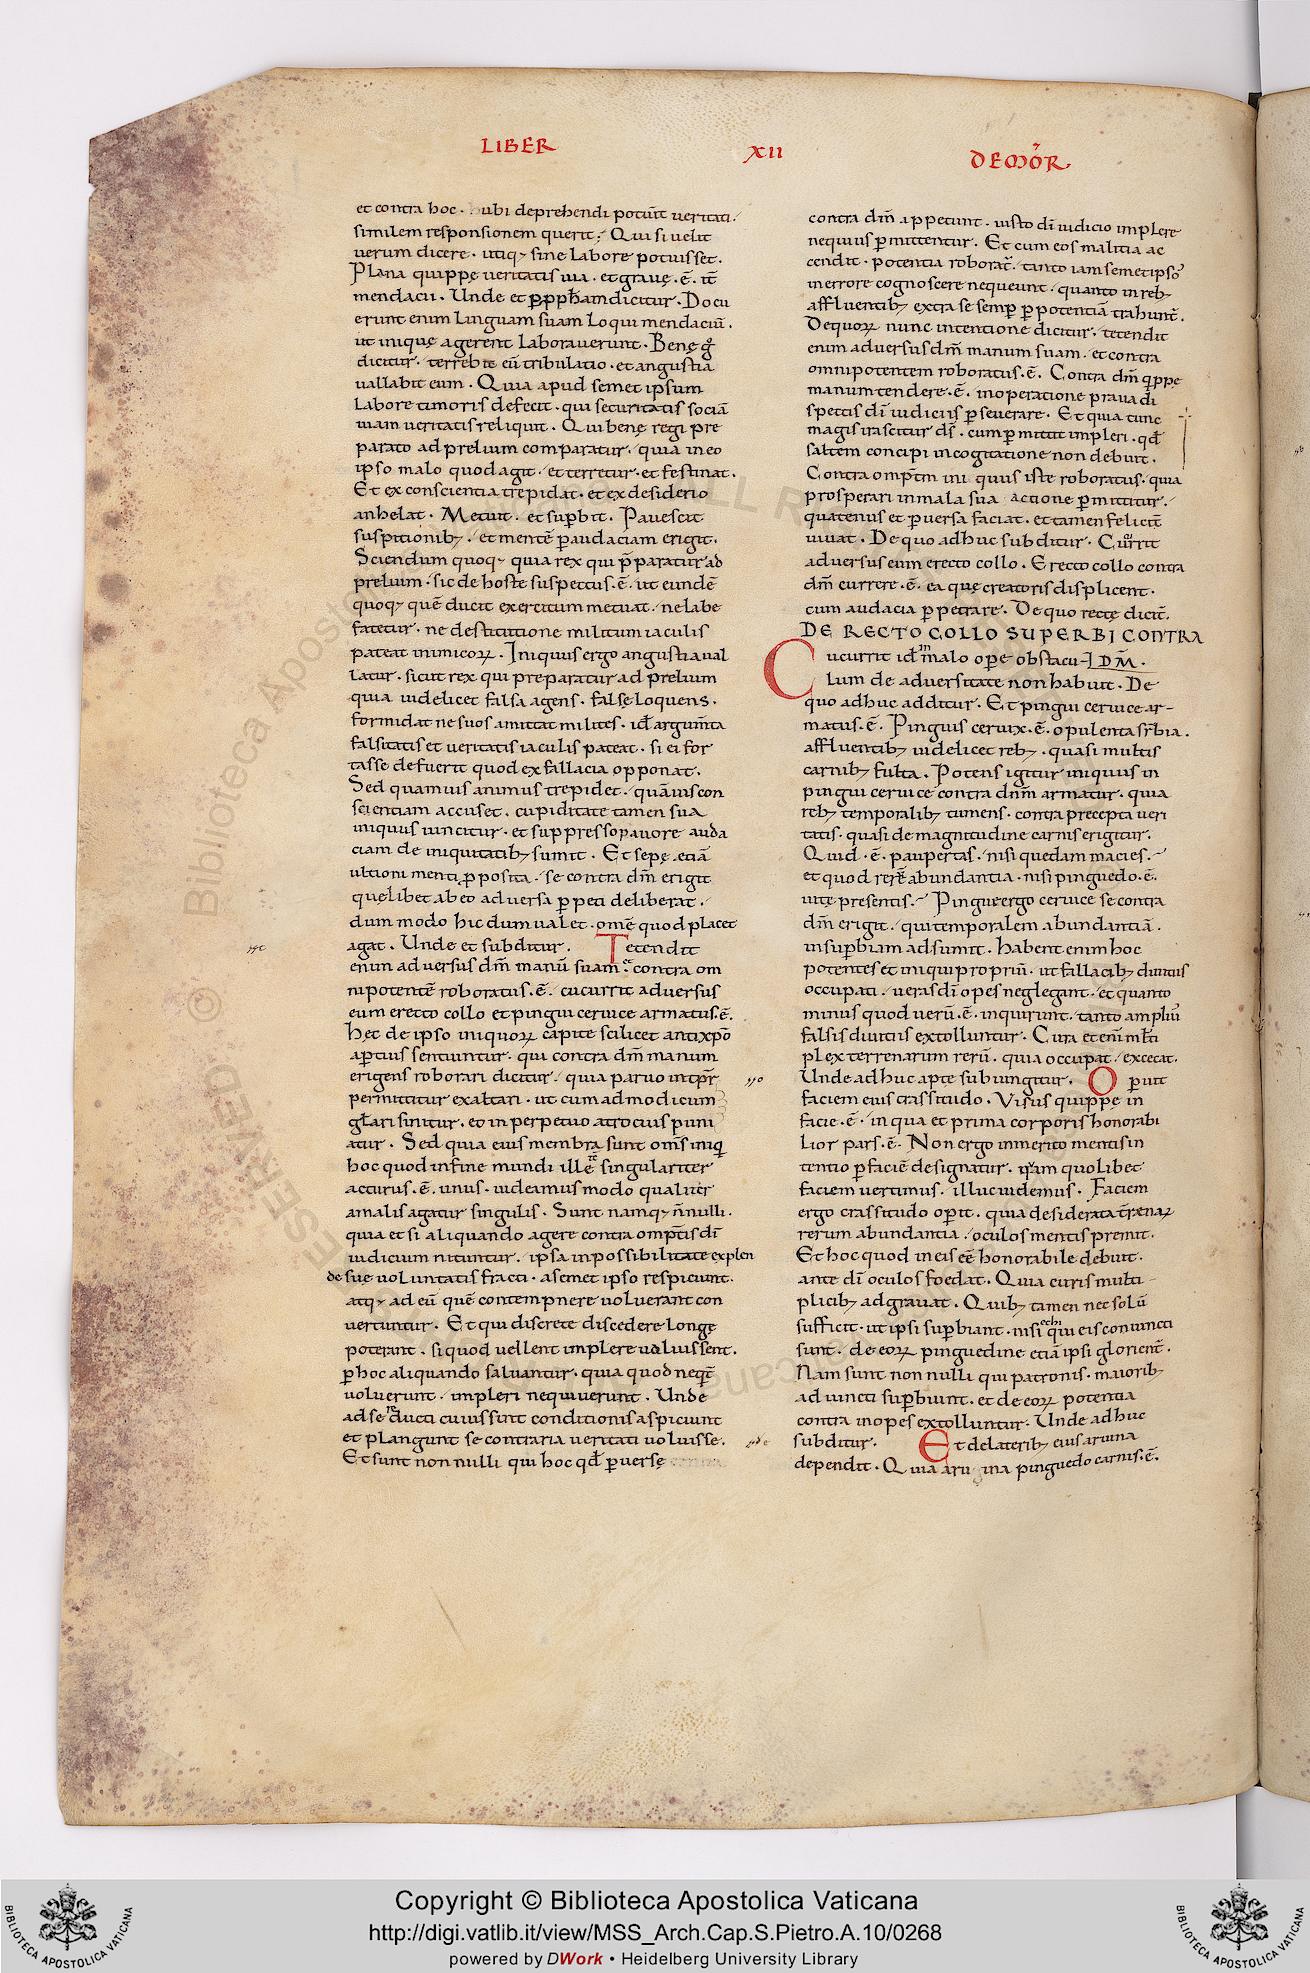 LIBER XII DE MOR̄
et contra hoc · ubi deprehendi potuit ueritati·
similem responsionem querit· Qui si uelit
uerum dicere · utiq; sine labore potuisset.
Plana quippę ueritatis uia · et grauę · ē · iť
mendacii · Unde et ꝑ ꝓph̄am dicitur · Docu
erunt enim linguam suam loqui mendaciū .
ut inique agerent laborauerunt · Benę g̊
dicitur · terrebit eū tribulatio · et angustia
uallabit eum · Quia apud semet ipsum
labore timoris defecit · qui securitatis sociā
uiam ueritatis reliquit . Qui benę regi pre
parato ad prelium comparatur · quia in eo
ipso malo quod agit · et terretur · et festinat .
Et ex conscientia trepidat · et ex desiderio
anhelat · Metuit · et supbit · Pauescit
suspitionib; · et mentē paudaciam erigit.
Sciendum quoq; quia rex qui p̄paratur ad
prelium · sic de hoste suspectus · ē · ut eundē
quoq; quē ducit exercitum metuat · ne labe
fatetur · ne destitutione militum iaculis
pateat inimicoꝝ . Iniquus ergo angustia ual
latur · sicut rex qui preparatur ad prelium
quia uidelicet falsa agens · falsę loquens ·
formidat ne suos amittat milites · id argum̄ta
falsitatis et ueritatis iaculis pateat · si ei for
tasse defuerit quod ex fallacia opponat .
Sed quamuis animus trepidet · quāuis con
scientiam accuset . cupiditate tamen sua
iniquus uincitur · et suppresso pauore auda
ciam de iniquitatib; sumit . Et sepę etiā
ultioni menti p̄posita · se contra dm̄ erigit
quelibet ab eo aduersa ppeti deliberat .
dum modo hic dum ualet . omē quod placet
agat . Unde et subditur . Tetendit
enim aduersus dm̄ manū suam · et contra om
nipotentē roboratus · ē · cucurrit aduersus
eum erecto collo et pingui ceruice armatus · ē .
Hęc de ipso iniquoꝝ capite scilicet antixp̄o
aptius sentiuntur · qui contra dm̄ manum
erigens roborari dicitur · quia paruo intpr̄
permittitur exaltari · ut cum ad modicum
gl̄ari sinitur · eo in perpetuo atrocius puni
atur · Sed quia eius membra sunt om̄s iniq
hoc quod in fine mundi ille singulariter
acturus · ē · unus · uideamus modo qualiter
a malis agatur singulis · Sunt namq; n̄nulli ·
quia et si aliquando agere contra omptis dī
iudicium nituntur . ipsa inpossibilitate explen
de suę uoluntatis fracti · a semet ipso respiciunt .
atq; ad eū quē contempnere uoluerant con
uertuntur . Et qui discrete discedere longę
poterant · si quod uellent implere uoluissent .
p hoc aliquando saluantur · quia quod neqit
uoluerunt · impleri nequiuerunt . Unde
ad se reducti cuius sint conditionis aspiciunt
et plangunt se contraria ueritati uoluisse .
Et sunt non nulli qui hoc qd̄ puersę
contra dm̄ appetunt · iusto dī iudicio implere
nequius pmittentur . Et cum eos malitia ac
cendit · potentia roborat · tanto iam semet ipsos
in errore cognoscere nequeunt · quanto in reb;
affluentib; extra se semp p potentiā trahunt̄ .
De quoꝝ nunc intentione dicitur · tetendit
enim aduersus dm̄ manum suam · et contra
omnipotentem roboratus · ē . Contra dm̄ quippę
manum tendere · ē · in operatione praua di
spectis dī iudiciis pseuerare · Et quia tunc
magis irascitur ds̄ · cum pmittit impleri · qd̄
saltem concipi in cogitatione non debuit .
Contra omptm̄ iniquus iste roboratus · quia
prosperari in mala sua actione pmittitur ·
quatenus et puersa faciat · et tamen felicit̄
uiuat · De quo adhuc subditur · Currit
aduersus eum erecto collo . Erecto collo contra
dm̄ currere · ē · ea quę creatoris displicent ·
cum audacia ppetrare . De quo rectę dicit̄ .
DE RECTO COLLO SUPERBI CONTRA
Cucurrit id in malo opę obstacu- DM̄ .
lum de aduersitate non habuit . De
quo adhuc additur . Et pingui ceruice ar-
matus · ē . Pinguis ceruix · ē · opulenta suꝑbia .
affluentib; uidelicet reb; · quasi multis
carnib; fulta . Potens igitur iniquus in
pingui ceruice contra dnm̄ armatur · quia
reb; temporalib; tumens · contra precepta ueri
tatis · quasi de magnitudine carnis erigitur .
Quid · ē · paupertas · nisi quedam macies ·
et quod rerū abundantia · nisi pinguedo · ē ·
uitę presentis · Pingui ergo ceruice se contra
dm̄ erigit · qui temporalem abundantiā .
in supbiam adsumit . Habent enim hoc
potentes et iniqui propriū · ut fallacib; diuitiis
occupati · ueras dī opes neglegant · et quanto
minus quod uerū · ē · inquirunt · tanto ampliꝰ
falsis diuitiis extolluntur . Cura et enī mlti
plex terrenarum rerū · quia occupat · excecat .
Unde adhuc apte subiungitur . Operuit
faciem eius crassitudo . Visus quippę in
facie · ē · in qua et prima corporis honorabi
lior pars · ē · Non ergo immerito mentis in
tentio p faciē designatur . quam quolibet
faciem uertimus · illuc uidemus . Faciem
ergo crassitudo opit . quia desiderata tr̄renaꝝ
rerum abundantia · oculos mentis premit .
Et hoc quod in eis eē honorabile debuit .
ante dī oculos foedat . Quia curis multi-
plicib; adgrauat . Quib; tamen nec solū
sufficit · ut ipsi supbiant · nisi et hi qui eis coniuncti
sunt . de eoꝝ pinguedine etiā ipsi glorient̄ .
Nam sunt non nulli qui patronis · maiorib;
adiuncti supbiunt . et de eoꝝ potentia
contra inopes extolluntur . Unde adhuc
subditur . Et de laterib; eius aruina
dependit . Quia aruina pinguedo carnis · ē .
© Biblioteca Apostolica Vaticana
ALL RIGHTS RESERVED
Copyright © Biblioteca Apostolica Vaticana
http://digi.vatlib.it/view/MSS_Arch.Cap.S.Pietro.A.10/0268
powered by DWork • Heidelberg University Library
BIBLIOTECA APOSTOLICA VATICANA
BIBLIOTECA APOSTOLICA VATICANA